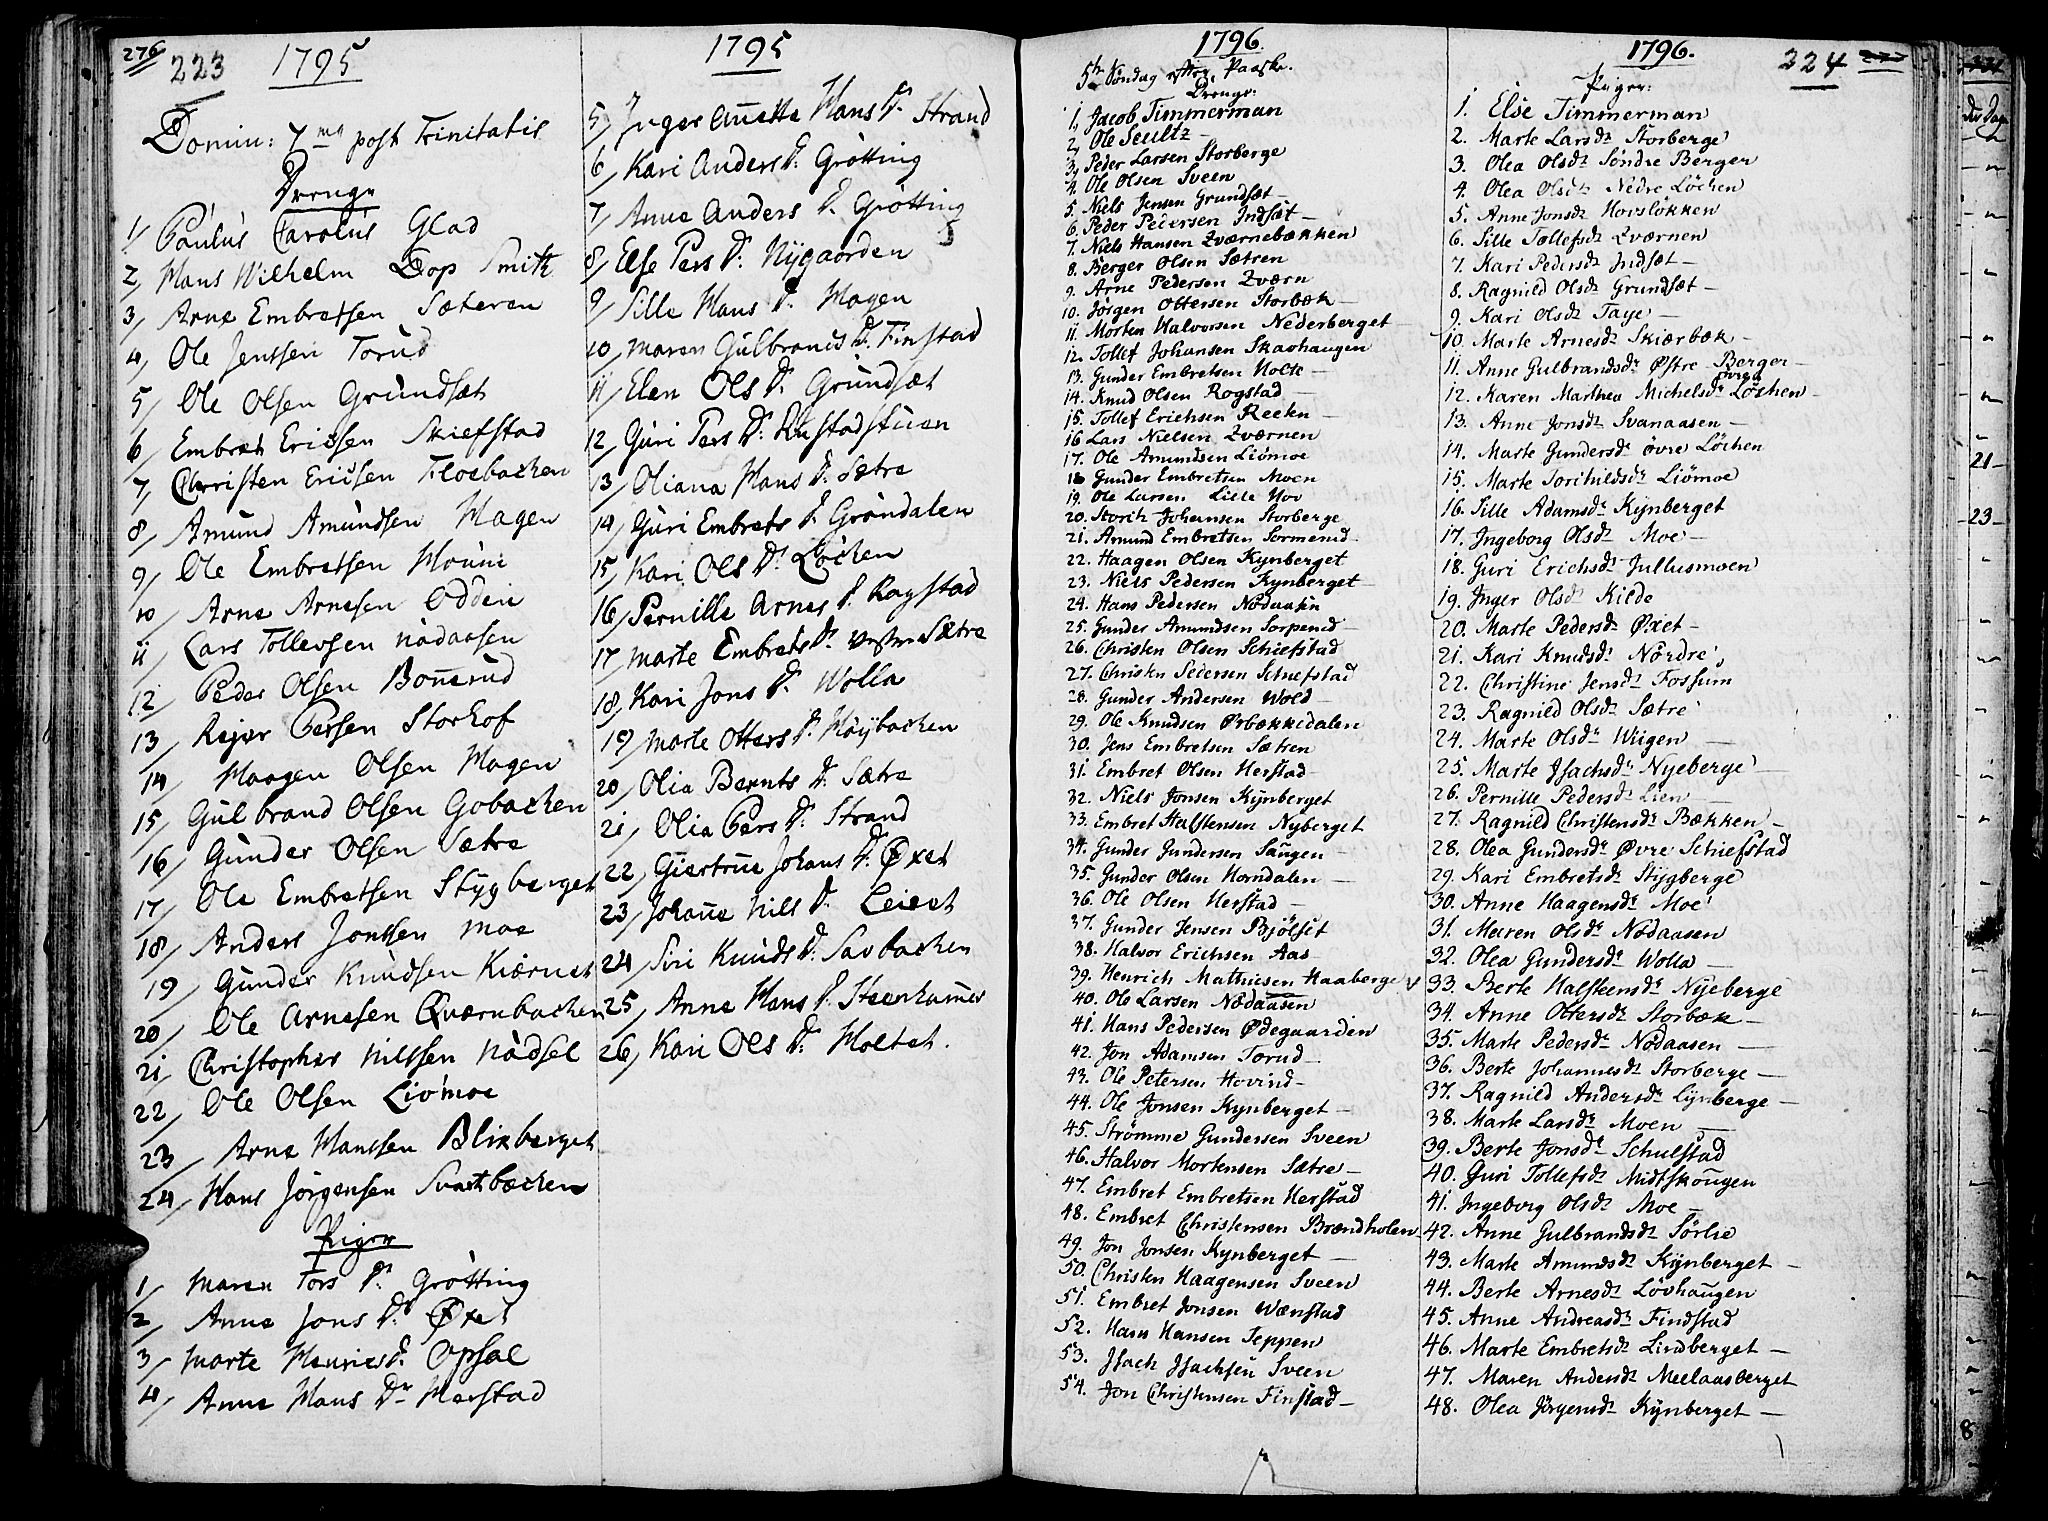 276
223 1795
Domin: 7ma post Trinitatis
Drenge
1/ Paulus Carolus Glad
2/ Hans Wilhelm Dop Smith
3/ Arne Embretsen Sæteren
4/ Ole Jenssen Torud
5/ Ole Olsen Grundsæt
6/ Embret Ericsen Skiefstad
7/ Christen Ericsen Floebachen
8/ Amund Amundsen Hagen
9/ Ole Embretsen
10/ Arne Arnesen Odden
11/ Lars Tollevsen nödaasen
12/ Peder Olsen Bonerud
13/ Rejer Persen Storhof
14/ Haagen Olsen Hagen
15/ Gulbrand Olsen Gobachen
16/ Gunder Olsen Sætre
17/ Ole Embretsen Stygberget
18/ Anders Jonssen moe
19/ Gunder Knudsen Kiærnet
20/ Ole Arnesen Qværnbachen
21/ Christopher Nilssen Nödsel
22/ Ole Olsen Liömoe
23/ Arne Hanssen Blixberget
24/ Hans Jörgensen Svartbachen
Piger
1/ Maren Tors Dr Grötting
2/ Anne Jons Dr Øxet
3/ Marte Henrics Dr Opsal
4/ Anne Hans Dr Herstad
1795
5/ Inger Anette Hans Dr Strand
6/ Kari Anders Dr Grötting
7/ Anne Anders Dr Grötting
8/ Else Pers Dr Nygaarden
9/ Sille Hans Dr Hagen
10/ Maren Gulbrands Dr Finstad
11/ Elen Ols Dr Grundsæt
12/ Guri Pers Dr Rustadstuen
13/ Oliana Hans Dr Sætre
14/ Guri Embrets Dr Gröndalen
15/ Kari Ols Dr Löchen
16/ Pernille Arnes Dr Rogstad
17/ Marte Embrets Dr Vestre Sætre
18/ Kari Jons Dr Wolla
19/ Marte Otters Dr Höybachen
20/ Olia Bernts Dr Sætre
21/ Olia Pers Dr Strand
22/ Giertrue Johans Dr Øxet
23/ Johane Nils Dr Leiret
24/ Siri Knuds Dr Savbachen
25/ Anne Hans Dr Steenhamer
26/ Kari Ols Dr Holtet.
1796.
5te Söndag efter Paaske.
Drenge:
1, Jacob Timmerman
2, Ole Seultz —
3, Peder Larsen Storberge
4. Ole Olsen Sveen
5. Niels Jensen Grundset —
6. Peder Pedersen Indset —
7. Niels Hansen Zværnebækken
8. Berger Olsen Sætren
9. Arne Pedersen Zværn
10. Jörgen Ottersen Storbæk —
11. Morten Halvorsen Nederberget
12. Tollef Johansen Skavhaugen
13. Gunder Embretsen Holte —
14. Knud Olsen Rogstad —
15. Tollef Erichsen Reekn —
16 Lars Nielsen Zværnen
17. Ole Amundsen Liömoe
18 Gunder Embretsen Moen
19. Ole Larsen Lille Hov
20. Storch Johansen Storberge
21. Amund Embretsen Sormerud
22. Haagen Olsen Kynberget
23. Niels Pedersen Kynberget —
24. Hans Pedersen Nödaasen
25. Gunder Amundsen Sorperud —
26. Christen Olsen Schiefstad
27. Christen Pedersen Schiefstad
28. Gunder Andersen Wold —
29. Ole Knudsen Ørbækkedalen
30. Jens Embretsen Sætren
31. Embret Olsen Herstad —
32. Niels Jonsen Kynberget
33. Embret Halstensen Nyberget
34. Gunder Gundersen Saugen
35. Gunder Olsen Horndalen —
36. Ole Olsen Herstad —
37. Gunder Jensen Bjölset
38. Halvor Erichsen Aas —
39. Henrich Mathiesen Haaberget
40. Ole Larsen Nödaasen
41. Hans Pedersen Ødegaarden
42. Jon Adamsen Torud —
43. Ole Petersen Hovind —
44. Ole Jonsen Kynberget —
45. Strömme Gundersen Sveen
46. Halvor Mortensen Sætre —
47. Embret Embretsen Herstad
48. Embret Christensen Brændholen
49. Jon Jonsen Kynberget —
50. Christen Haagensen Sveen
51. Embret Jonsen Wænstad
52. Hans Hansen Seppen
53. Isach Isachsen Sveen
54. Jon Christensen Finstad —
1796. 224
Piger:
1. Else Timmerman
2. Marte Larsdr Storberge
3. Olea Olsdr Söndre Berger
4. Olea Olsdr Nedre Löchen
5. Anne Jonsdr Horslökken
6. Sille Tollefsdr Zværnen
7. Kari Pedersdr Indsæt —
8. Ragnild Olsdr Grundsæt —
9. Kari Olsdr Taye —
10. Marte Arnesdr Skiærbæk —
11. Anne Gulbrandsdr Østre Berger —
12. Karen Marthea Michelsdr övre Löchen —
13. Anne Jonsdr Svanaasen —
14. Marte Gundersdr övre Löchen
15. Marte Torchildsdr Liömoe
16. Sille Adamsdr Kynberget
17. Ingeborg Olsdr Moe —
18. Guri Erichsdr Jullusmoen
19. Inger Olsdr Kilde
20. Marte Pedersdr Øxet —
21. Kari Knudsdr Nordre
22. Christine Jensdr Fossum
23. Ragnild Olsdr Sætre
24. Marte Olsdr Wiigen —
25. Marte Isachsdr Nyeberge —
26. Pernille Pedersdr Lien —
27. Ragnild Christensdr Bækken —
28. Olea Gundersdr Øvre Schiefstad
29. Kari Embretsdr Stygberge
30. Anne Haagensdr Moe
31. Maren Olsdr Nödaasen
32. Olea Gundersdr Wolla —
33. Berte Halsteensdr Nyeberge
34. Anne Ottersdr Storbæk —
35. Marte Pedersdr Nödaasen —
36. Berte Johannesdr Storberge —
37. Ragnild Andersdr Lynberge —
38. Marte Larsdr Moen —
39. Berte Jonsdr Schulstad
40. Guri Tollefsdr Midtskougen
41. Ingeborg Olsdr Moe —
42. Anne Gulbrandsdr Sörlie
43. Marte Amundsdr Kynberget —
44. Berte Arnesdr Lövhaugen
45. Anne Andreasdr Findstad
46. Marte Embretsdr Lindberget —
47. Maren Andersdr Meelaasberget
48. Olea Jörgensdr Kynberget —
21
23
8